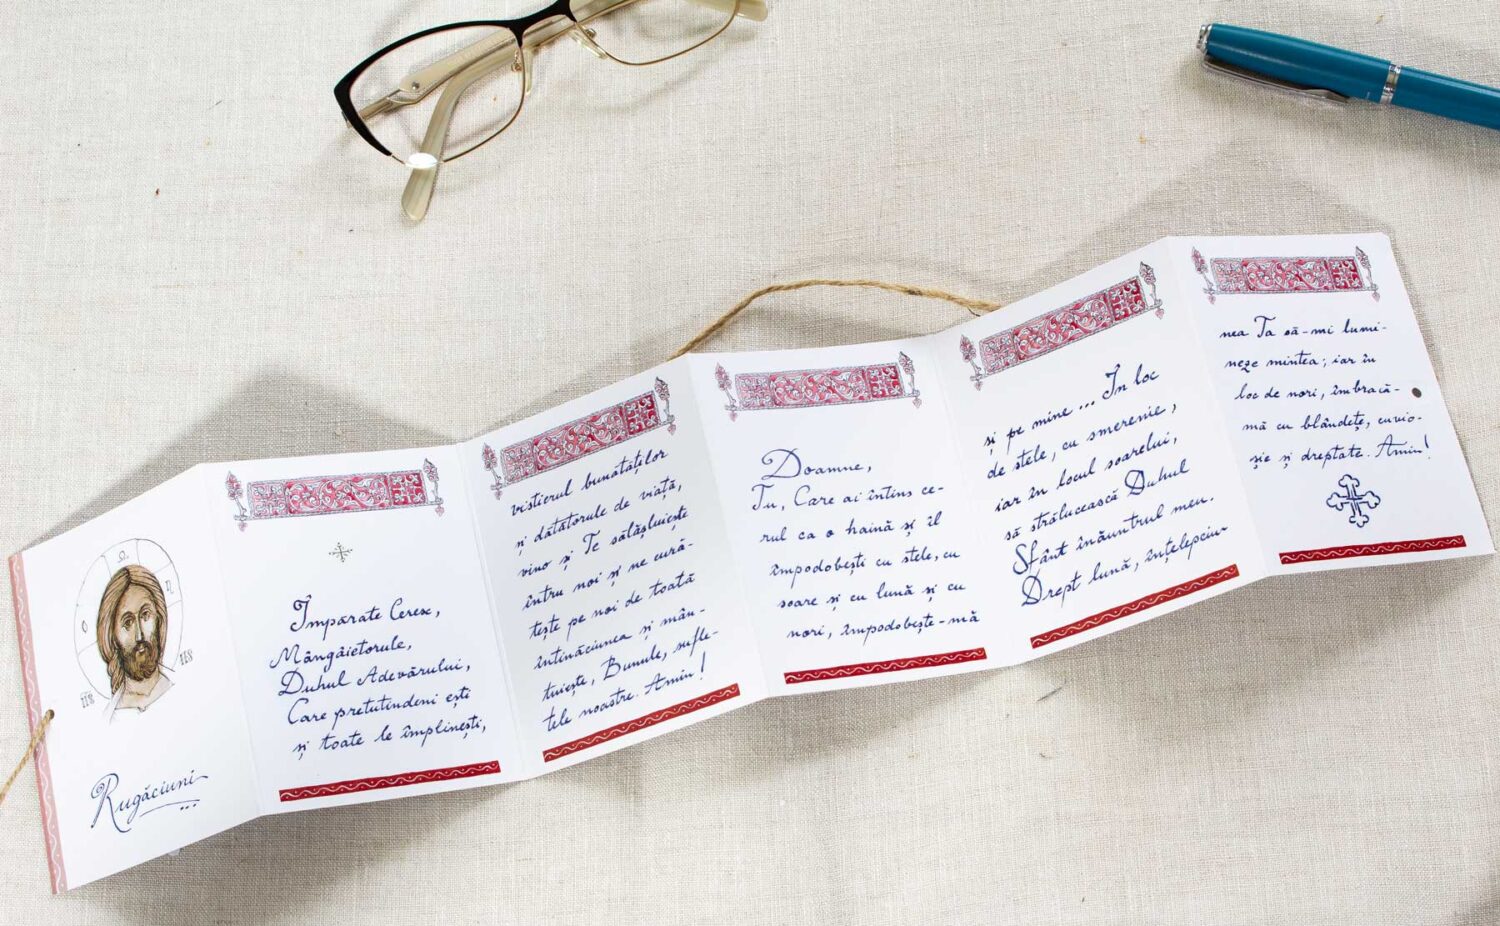 Ο Ω Ν
IIS IIS
Rugăciuni...
Împărate Ceresc,
Mângâietorule,
Duhul Adevărului,
Care pretutindeni ești
și toate le împlinești,
vistierul bunătăților
și dătătorule de viață,
vino și Te sălășluiește
întru noi și ne cură-
țește pe noi de toată
întinăciunea și mân-
tuiește, Bunule, sufle-
tele noastre. Amin!
Doamne,
Tu, Care ai întins ce-
rul ca o haină și îl
împodobești cu stele, cu
soare și cu lună și cu
nori, împodobește-mă
și pe mine... În loc
de stele, cu smerenie,
iar în locul soarelui,
să strălucească Duhul
Sfânt înăuntrul meu.
Drept lună, înțelepciu-
nea Ta să-mi lumi-
neze mintea; iar în
loc de nori, îmbracă-
mă cu blândețe, cuvio-
șie și dreptate. Amin!